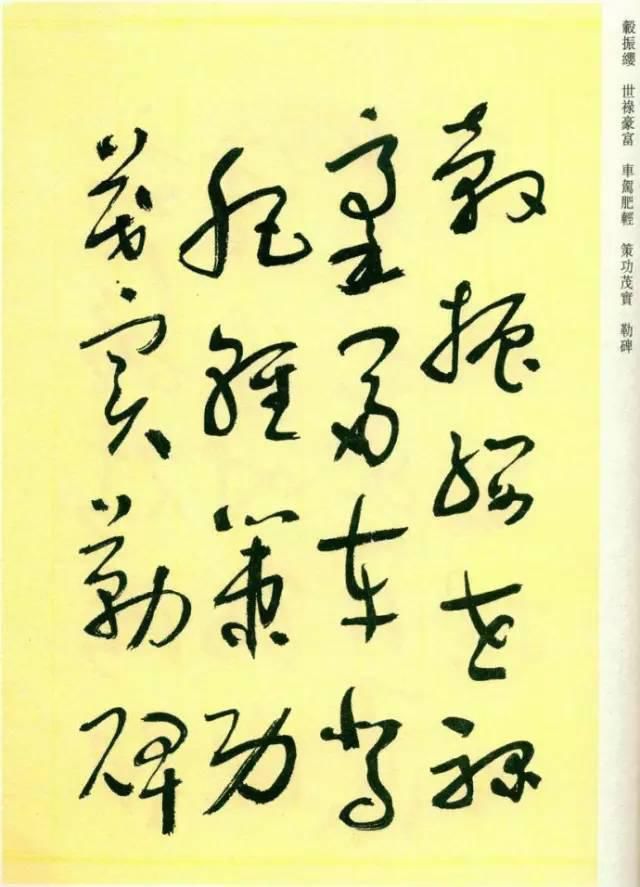 轂振纓 世祿豪富 車駕肥輕 策功茂實 勒碑
轂振纓世祿
豪富車駕
肥輕策功
茂實勒碑